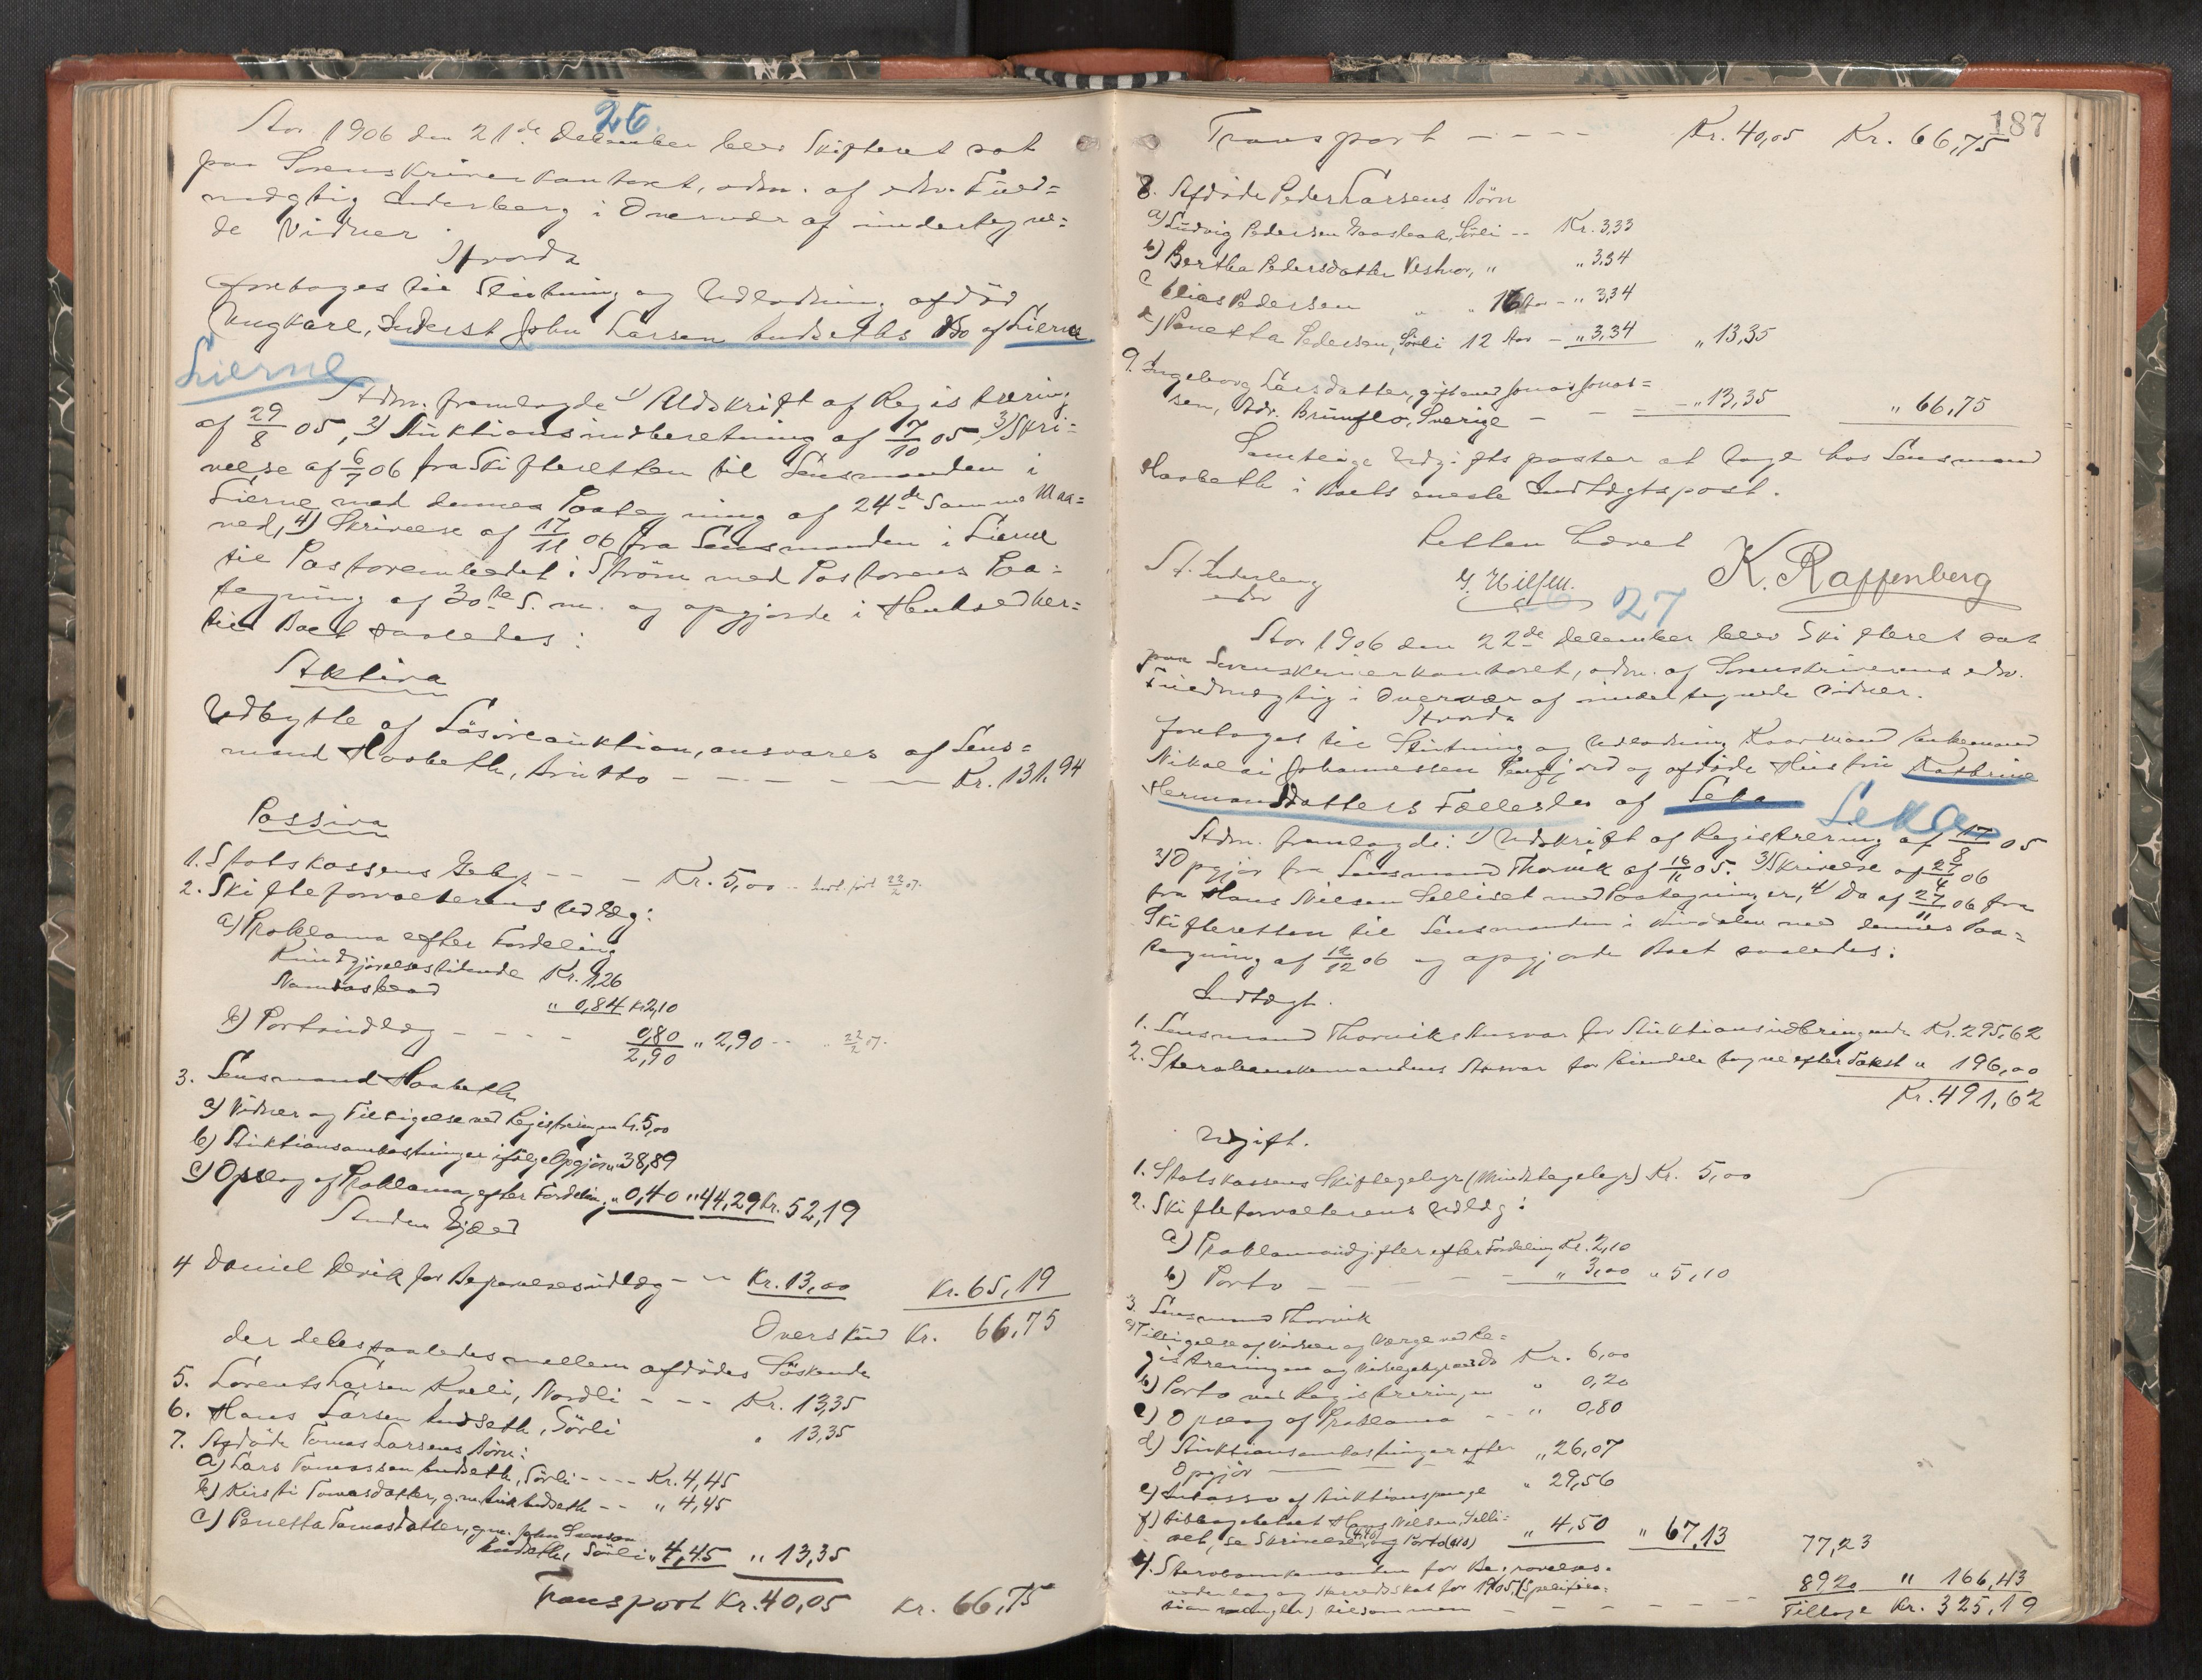 26.
Aar 1906 den 21de December blev Skifteret sat
paa Sorenskriverkontoret, adm. af edsv. Fuld=
mægtig Anderberg i Overvær af undertegne=
de Vidner
Hvorda
foretoges til Slutning og Udlodning afdød
Ungkarl, Inderst John Larsen Sudseths Bo af Lierne
Lierne
Adm. fremlagde 1) Udskrift af Registrering
af 29/8 05, 2) Auktionsindberetning af 17/10 05, 3) Skri=
velse af 6/7 06 fra Skifteretten til Lensmanden i
Lierne med dennes Paategning af 24de samme Maa=
ned, 4) Skrivelse af 17/11 06 fra Lensmanden i Lierne
til Pastorembedet i Strøm med Pastorens Paa=
tegning af 30te s. m. og opgjorde i Henhold her=
til Boet saaledes:
Aktiva
Udbytte af Løsøreauktion, ansvares af Lens=
mand Hasbeth, brutto - - - - - Kr. 131,94
Passiva
1. Statskassens Gebyr - - - Kr. 5,00 -- 22/2 07.
2. Skifteforvalterens Udlæg:
a) Proklama efter Fordeling
Kundgjørelsestidende Kr. 1,26
Namdasblad " 0,84 Kr. 2,10
b) Portoudlæg - - - - 0,80 " 2,90 -- " 22/2 07.
2,90
3. Lensmand Hasbeth
a) Vidner og Tilsigelse ved Registreringen Kr. 5,00
b) Auktionsomkostninger ifølge Opgjør " 38,89
c) Opslag af Proklama, efter Fordeling " 0,40 " 44,29 Kr. 52,19
Anden Gjæld
4 Daniel Devik for Begravelsesudlæg - - Kr. 13,00 Kr. 65,19
Overskud Kr. 66,75
der deles saaledes mellem afdødes Søskende
5. Lorents Larsen Kveli, Nordli - - - Kr. 13,35
6. Hans Larsen Sudseth, Sørli " 13,35
7. Afdøde Tomas Larsens Børn:
a) Lars Tomassen Sudseth, Sørli - - - - Kr. 4,45
b) Kirsti Tomasdatter, g.m. Sudseth - - " 4,45
c) Penetta Tomasdatter, g.m. John Svensen
Sudseth, Sørli " 4,45 " 13,35
Transport Kr. 40,05 Kr. 66,75
187
Transport - - - - Kr. 40,05 Kr. 66,75
8. Afdøde Peder Larsens Børn
a) Ludvig Pedersen Gaasbak, Sørli -- Kr. 3,33
b) Bertha Pedersdatter Vestvor, " " 3,34
c Elias Pedersen " " 16 Aar - " 3,34
d) Penetta Pedersen, Sørli 12 Aar - " 3,34 " 13,35
9. Ingeborg Larsdatter, gift med Jonas Jonas=
sen, Adr. Brunflo, Sverige - - - - " 13,35 " 66,75
Samtlige Udgiftsposter at tage hos Lensmand
Hasbeth i Boets eneste Indtægtspost.
Retten hævet
St. Anderberg
edsv
G. Nilsen.
K. Raffenberg
27
Aar 1906 den 22de December blev Skifteret sat
paa Sorenskriverkontoret, adm. af Sorenskriverens edsv.
Fuldmægtig i Overvær af undertegnede Vidner.
Hvorda
foretoges til Slutning og Udlodning Kaarmand Enkemand
Nikolai Johannessen og afdøde Hustru Kathrine
Hermansdatters Fællesbo af Leka
Leka
Adm. fremlagde: 1) Udskrift af Registrering af 17/8 05
2) Opgjør fra Lensmand Thorvik af 16/11 05. 3) Skrivelse af 27/4 06
fra Hans Nilsen Selliset med Paategninger, 4) Do af 27/11 06 fra
Skifteretten til Lensmanden i med dennes Paa=
tegning af 12/12 06 og opgjorde Boet saaledes:
Indtægt.
1. Lensmand Thorviks Ansvar for Auktionsudbringende Kr. 295,62
2. Sterobunkemandens Ansvar for Eiendele tagne efter Takst " 196,00
Kr. 491,62
Udgift.
1. Statskassens Skiftegebyr (Mindstegebyr) Kr. 5,00
2. Skifteforvalterens Udlæg:
a) Proklamaudgifter efter Fordeling Kr. 2,10
b) Porto - - - - - " 3,00 " 5,10
3. Lensmand Thorvik
a) Tilsigelse af Vidner og Værge ved Re=
gistreringen og Vidnegebyr Kr. 6,00
b) Porto ved Registreringen " 0,20
c) Opslag af Proklama - - " 0,80
d) Auktionsomkostninger efter
Opgjør " 26,07
e) Inkasso af Auktionspenge " 29,56
f) tilbagebetalt Hans Nilsen Selli=
set, se Skrivelse (4,40) og Porto (0,10) " 4,50 " 67,13 77,23
4. Sterobunkemanden for Begravelses=
omkostning og Herredsskat for 1905 (Specifika=
tion mangler) tilsammen - - - - - - 89,20 " 166,43
Tilbage Kr. 325,19